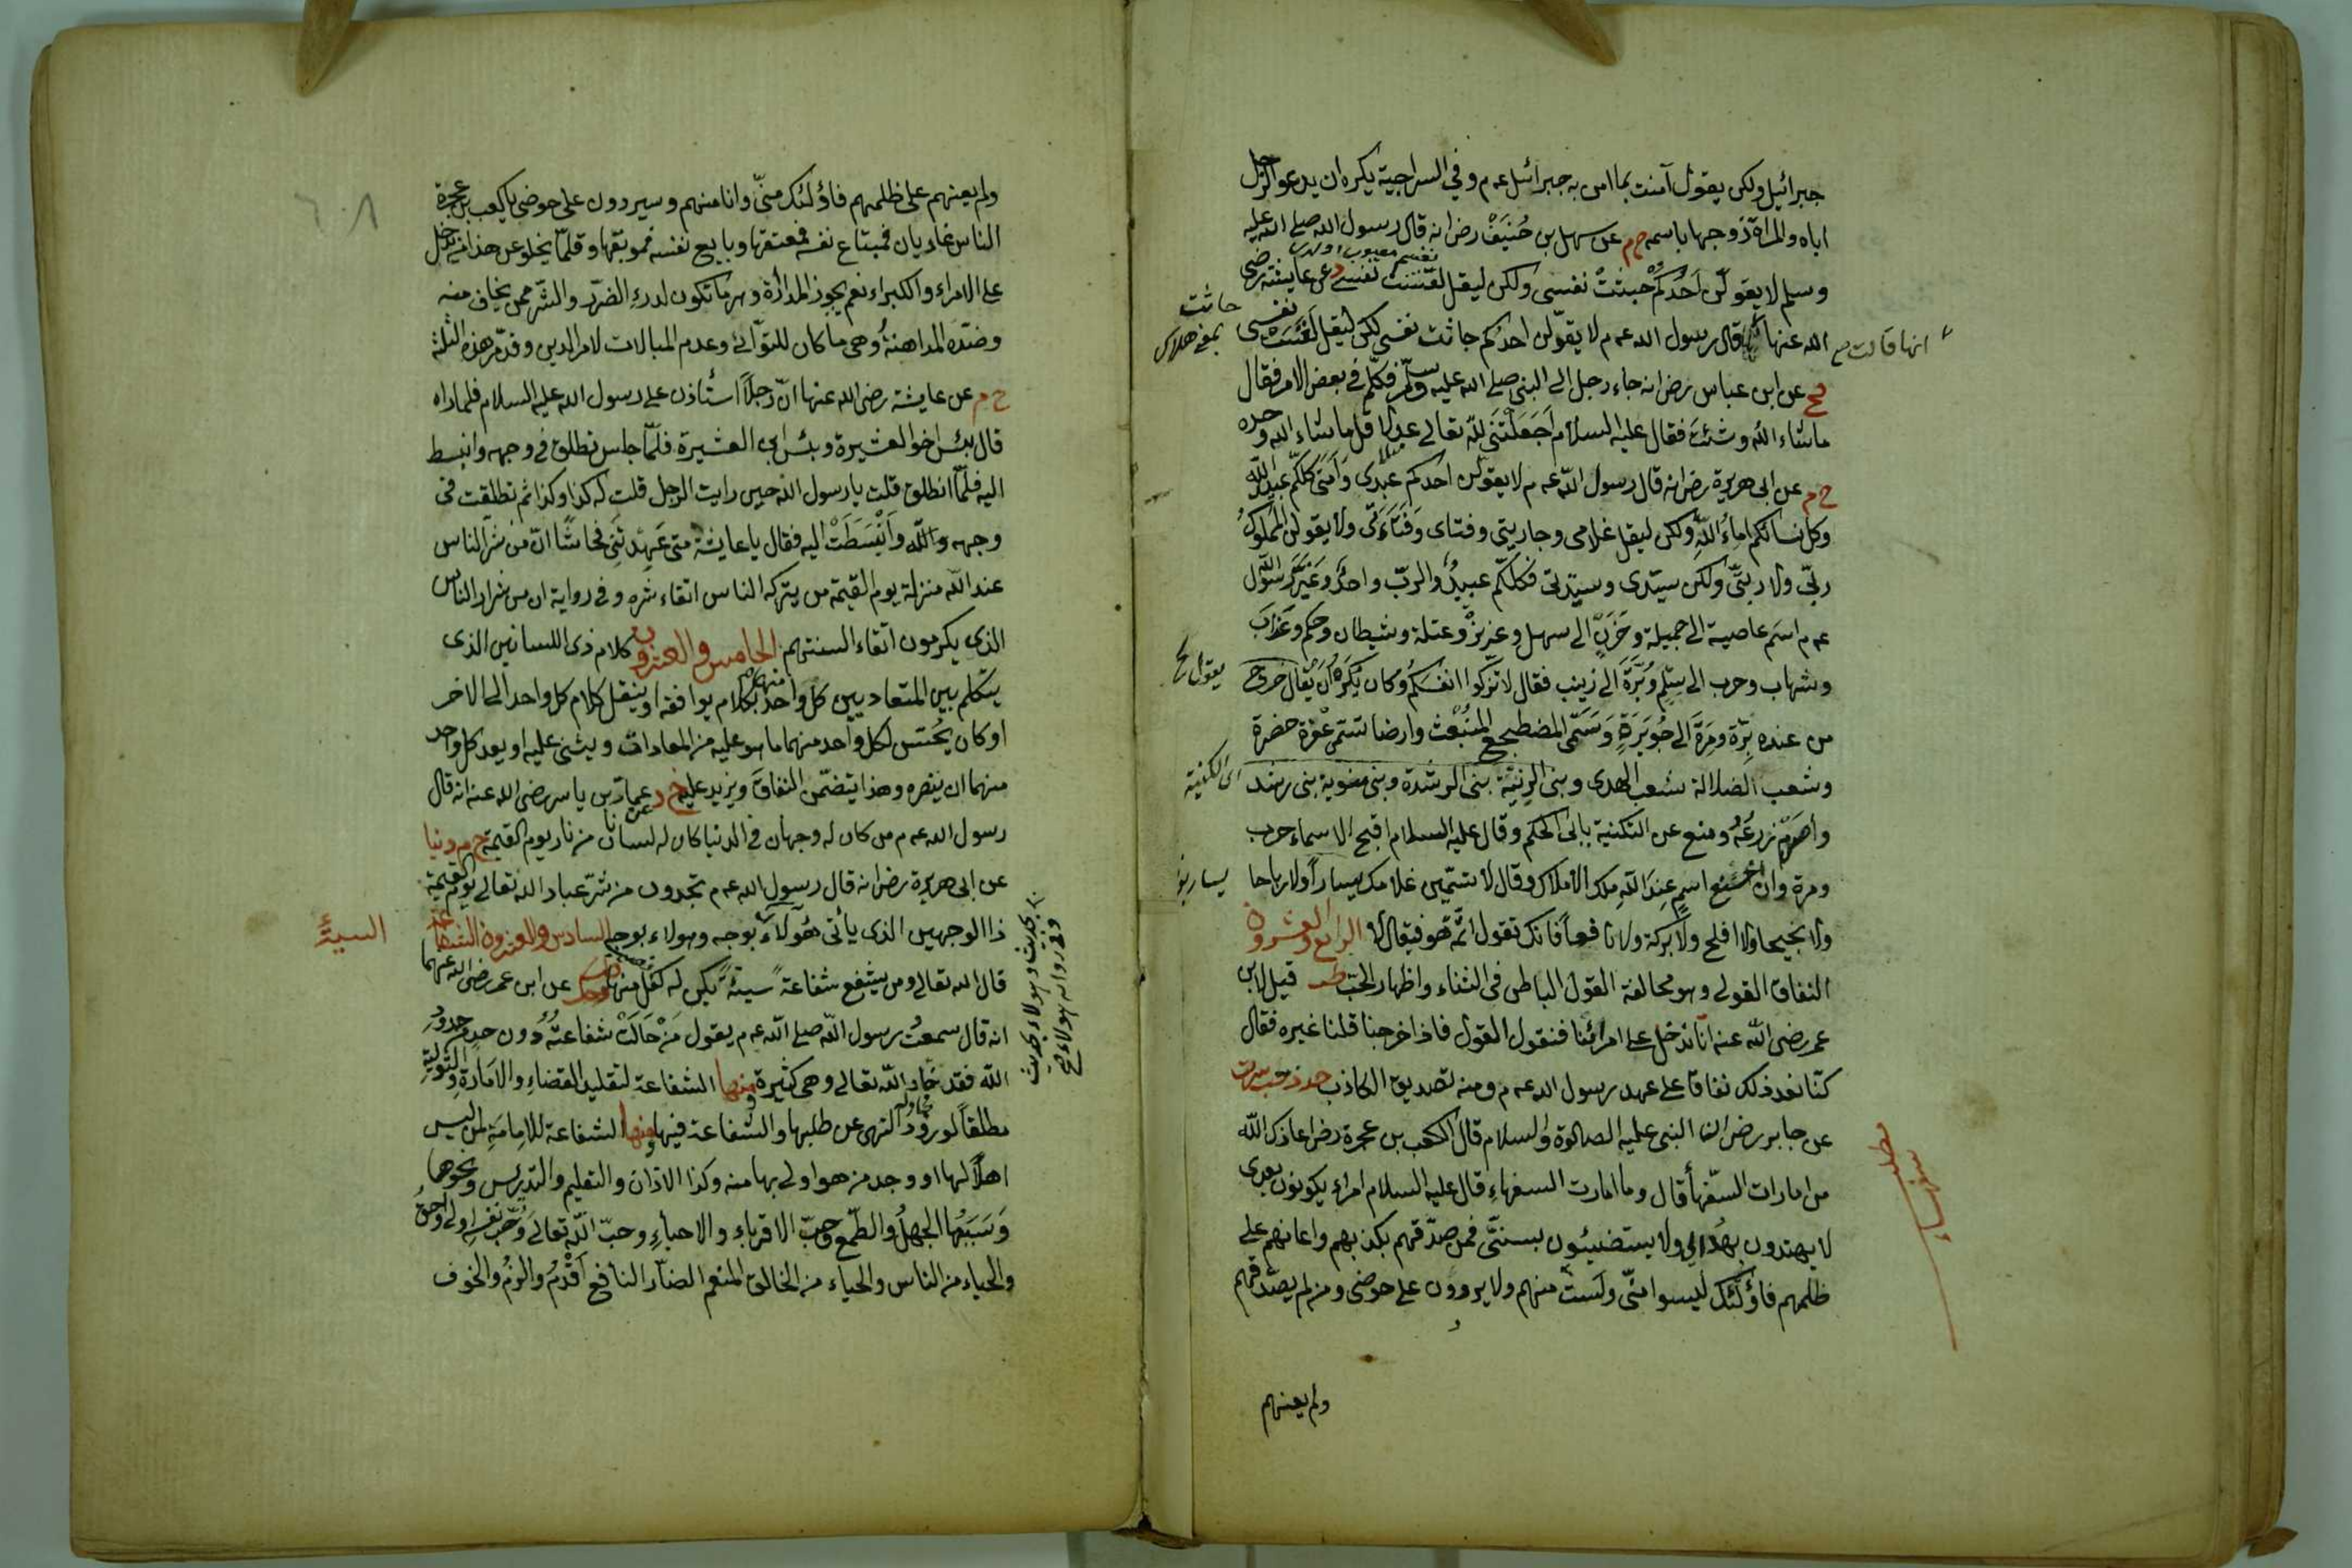 جبرائيل ولكن يقول آمنت بما امن به جبرائيل عه م وفي السراجية يكره ان يدعو الرجل
اباه والمراة زوجها باسمه خ م عن سهل بن حُنيَفْ رض انه قال رسول الله صلى الله عليه
وسلم لا يقولن اَحدُكُم خبثتْ نفسى ولكن ليقل لقِسَت نفسى د عن عايشة رضى
الله عنها قال رسول الله عه م لا يقولن احدكم جاثت نفسى لكن ليقل لقِسَت نفسى
انها قالت صح
جاشت
بمعنى هلاك
عن ابن عباس رض انه جاء رجل الى النبى صلى الله عليه وسلم فكلم فى بعض الامر فقال
ماشاء الله وشئتَ فقال عليه السلام اَجَعَلْتَنى لله تعالى عدلا قل ماشاء الله وحده
خ م عن ابى هريرة رض انه قال رسول الله عه م لا يقولن احدكم عبدى وَاَمَتى كلكم عبيد الله
وكل نسائكم اماءُ اللهِ ولكن ليقل غلامى وجاريتى وفتاى وَفَتَاتى ولا يقولن المملوكُ
ربّى ولا ربتى ولكن سيّدى وسيّدتى فكلكم عبيدٌ والربّ واحدٌ وَغيَّرَ رسول الله
عه م اسم عاصية الى جميلة وحَزَنٍ الى سهل وعزيزْ وعتلة وشيطان وحكم وغراب
وشهاب وحرب الى سِلْمٍ وبَرَّةَ الى زينب فقال لا تزكوا انفسَكُم وكان يَكرَهُ اَن يُقال خرج
يقول خ
من عنده برّة ومرّةَ الى جُوَيرَةٍ وَسَمّى المضطجع المنبعث وارضا تسمى عفرة خضرة
وشعب الضلالة شعب الهدى وبنى الزنيّة بنى الرشدة وبنى مغوية بنى رشد
اى الكنية
واَصرَمُ زرعَةُ ومنع عن التكنية بابى الحكم وقال عليه السلام اقبح الاسماء حرب
ومرة وان اخنع اسمٍ عِندَ الله ملك الاملاك وقال لا تسمّين غلامك يسارًا ولا رباحا
ولا نجيحا ولا افلح ولا بركة ولا نافعاً فانك تقول اَثمَّ هو فيقال لا الرابع والعشرون
النفاق القولى وهو مخالفة القول الباطن فى الثناء واظهار الحب طب قيل لابن
عمر رضى الله عنه انّا ندخل على امرائنا فنقول القول فاذا خرجنا قلنا غيره فقال
كنّا نعد ذلك نفاقا على عهد رسول الله عه م ومنه تصديق الكاذب حد ز حب
عن جابر رض ان النبى عليه الصلوة والسلام قال لكعب بن عجرة رض اعاذك الله
من امارات السّفهاء قال وما امارت السفهاءِ قال عليه السلام امراء يكونون بعدى
لا يهتدون بهُداى ولا يستضيئون بسنتى فمن صدّقهم بكذبهم واعانهم على
ظلمهم فاؤلئك ليسوا منّى ولَستُ منهم ولا يردون على حوضى ومن لم يصدّقهم
مطلب
ولم يعنهم
٦٠٨
ولم يعنهم على ظلمهم فاؤلئك منّى وانا منهم وسيردون على حوضى يا كعب بن عجرة
الناس غاديان فمبتاع نفسه فمعتقها وبايع نفسه فموبقها وقلمّا يخلو عن هذا من يدخل
على الامراء والكبراء نعم يجوز المدارة وهى ما تكون لدرء الضرر والشر ممن يخاف منه
وضده المداهنةُ وهى ما كان للتوانى وعدم المبالات لامر الدين وقد مر هذه الثلثة
خ م عن عايشة رضى الله عنها انّ رجلاً استأذن على رسول الله عليه السلام فلما رأه
قال بئس اخوا لعشيرة وبئس ابن العشيرة فلمّا جلس تطلق فى وجهه وانبسط
اليه فلمّا انطلق قلت يا رسول الله حين رايت الرجل قلت له كذا وكذا ثم تطلقت فى
وجهه والله وانبسَطتَ اليه فقال يا عايشة متى عَهِدتنى فحاشًا انّ من شر الناس
عند الله منزلة يوم القيمة من يتركه الناس اتقاء شره وفى رواية ان من شرار الناس
الذى يكرمون اتقاء السنتهم الخامس والعشرون كلام ذى اللسانين الذى
يتكلم بين المتعاديين كل واحد منهما بكلام يوافقه او ينقل كلام كل واحد الى الاخر
او كان يُحسّن لكل واحد منهما ما هو عليه من المعادات ويثنى عليه او يعد كل واحد
منهما ان ينصره وهذا يتضمّن النفاق ويزيد عليه خ د عن عمار بن ياسر رضى الله عنه انه قال
رسول الله عه م من كان له وجهان فى الدنيا كان له لسانان من نار يوم القيمة خ م دنيا
عن ابى هريرة رض انه قال رسول الله عه م تجدون من شرّ عباد الله تعالى يوم القيمة
ذا الوجهين الذى يأتى هؤلاء بوجه وهولاء بوجه السادس والعشرون الشفاعة
السيئة
بحديث وهولاء بحديث
وفى رواية هولاء صح
قال الله تعالى ومن يشفع شفاعة سيئةً يكن له كفل منها عن ابن عمر رضى الله عنهما
انه قال سمعتُ رسول الله صلى الله عه م يقول مَنْ حَالَتْ شفاعتُهُ دون حد من حدود
الله فقد ضاد الله تعالى وهى كثيرة منها الشفاعة لتقليد القضاءِ والامَارة والتوليةِ
مطلقاً لورود النهى عن طلبها والشفاعة فيها ومنها الشفاعة للامامة لمن ليس
اهلاً لها او وجد من هو اولى بها منه وكذا الاذان والتعليم والتدريس ونحوها
وَسَبَبُها الجهلُ والطمع وحبّ الاقرباءِ والاحباءِ وحبّ الله تعالى وَحبّ نفسه اولى واحق
والحياء من الناس والحياء من الخالق المنعم الضار النافع اَقْدَمُ والزمُ والخوف